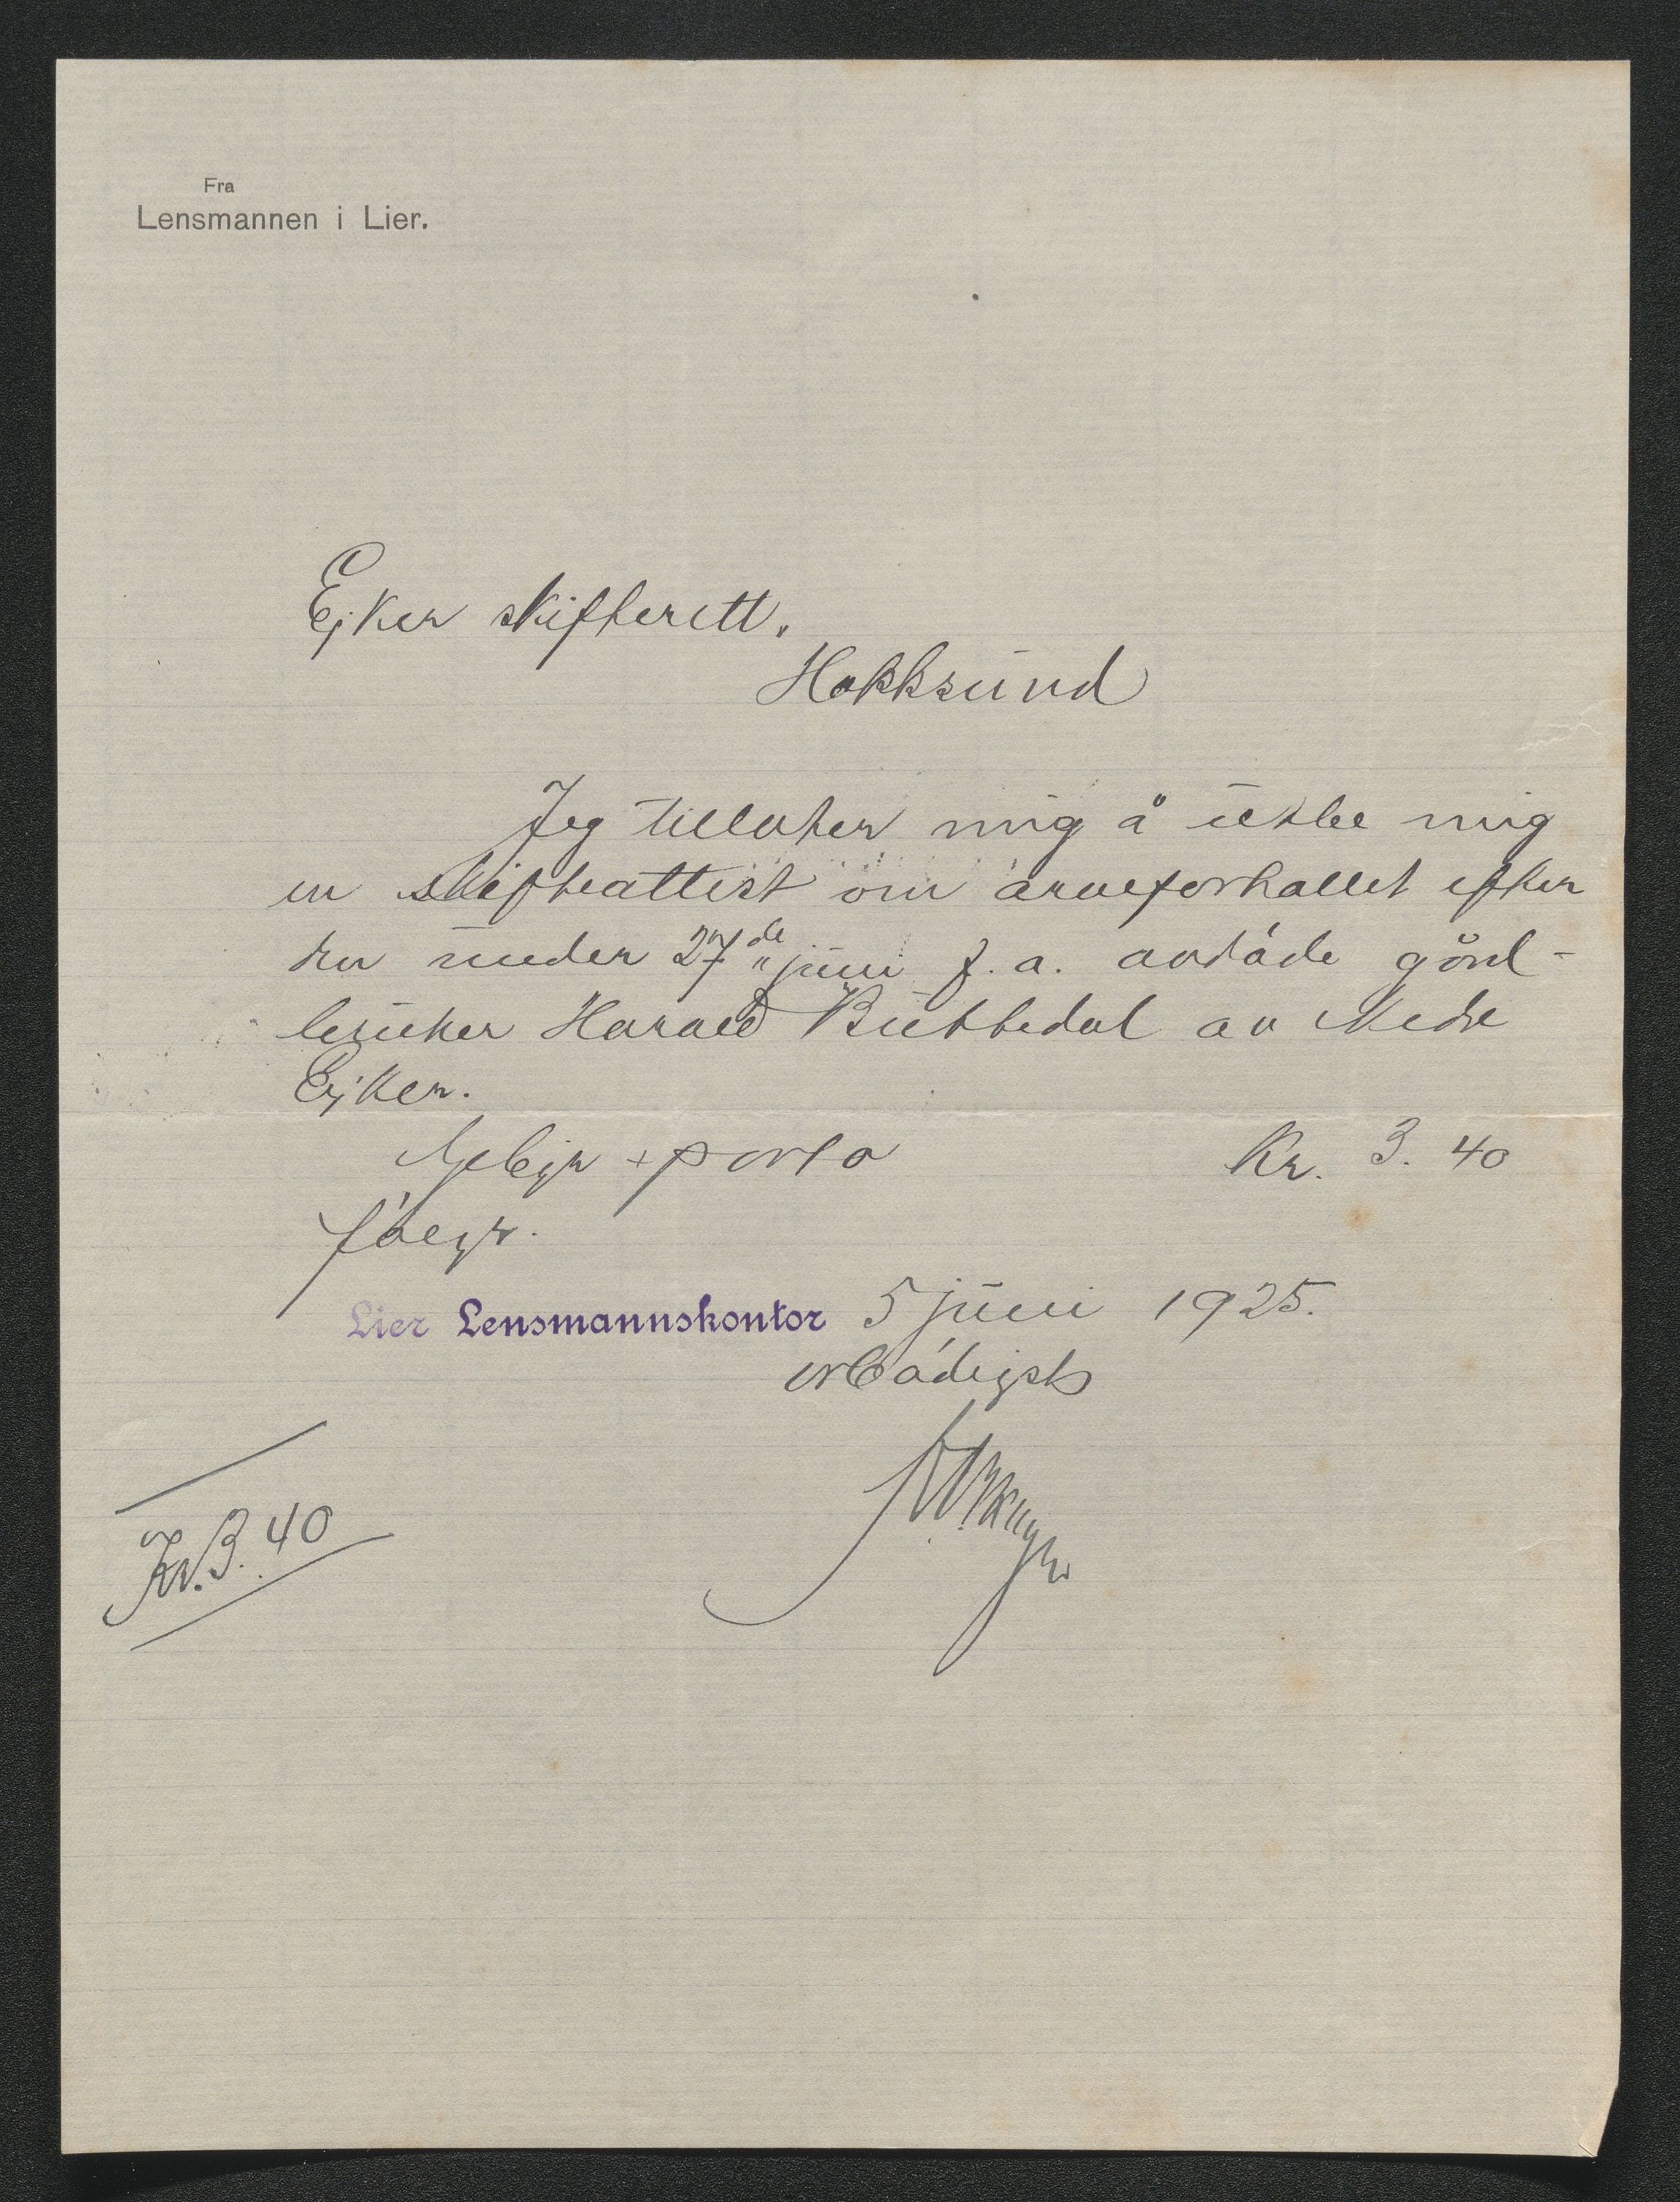 Fra
Lensmannen i Lier.
Ejker skifterett.
Hokksund
Jeg tillater mig å utbe mig
en skifteattest om arveforhallet efter
den under 27de juni f. a. avdøde gård-
bruker Harald Buttedal av Nedre
Ejker.
Gebyr + porto Kr. 3.40
følger.
Lier Lensmannskontor 5 juni 1925.
erbødigst
Kr. 3.40